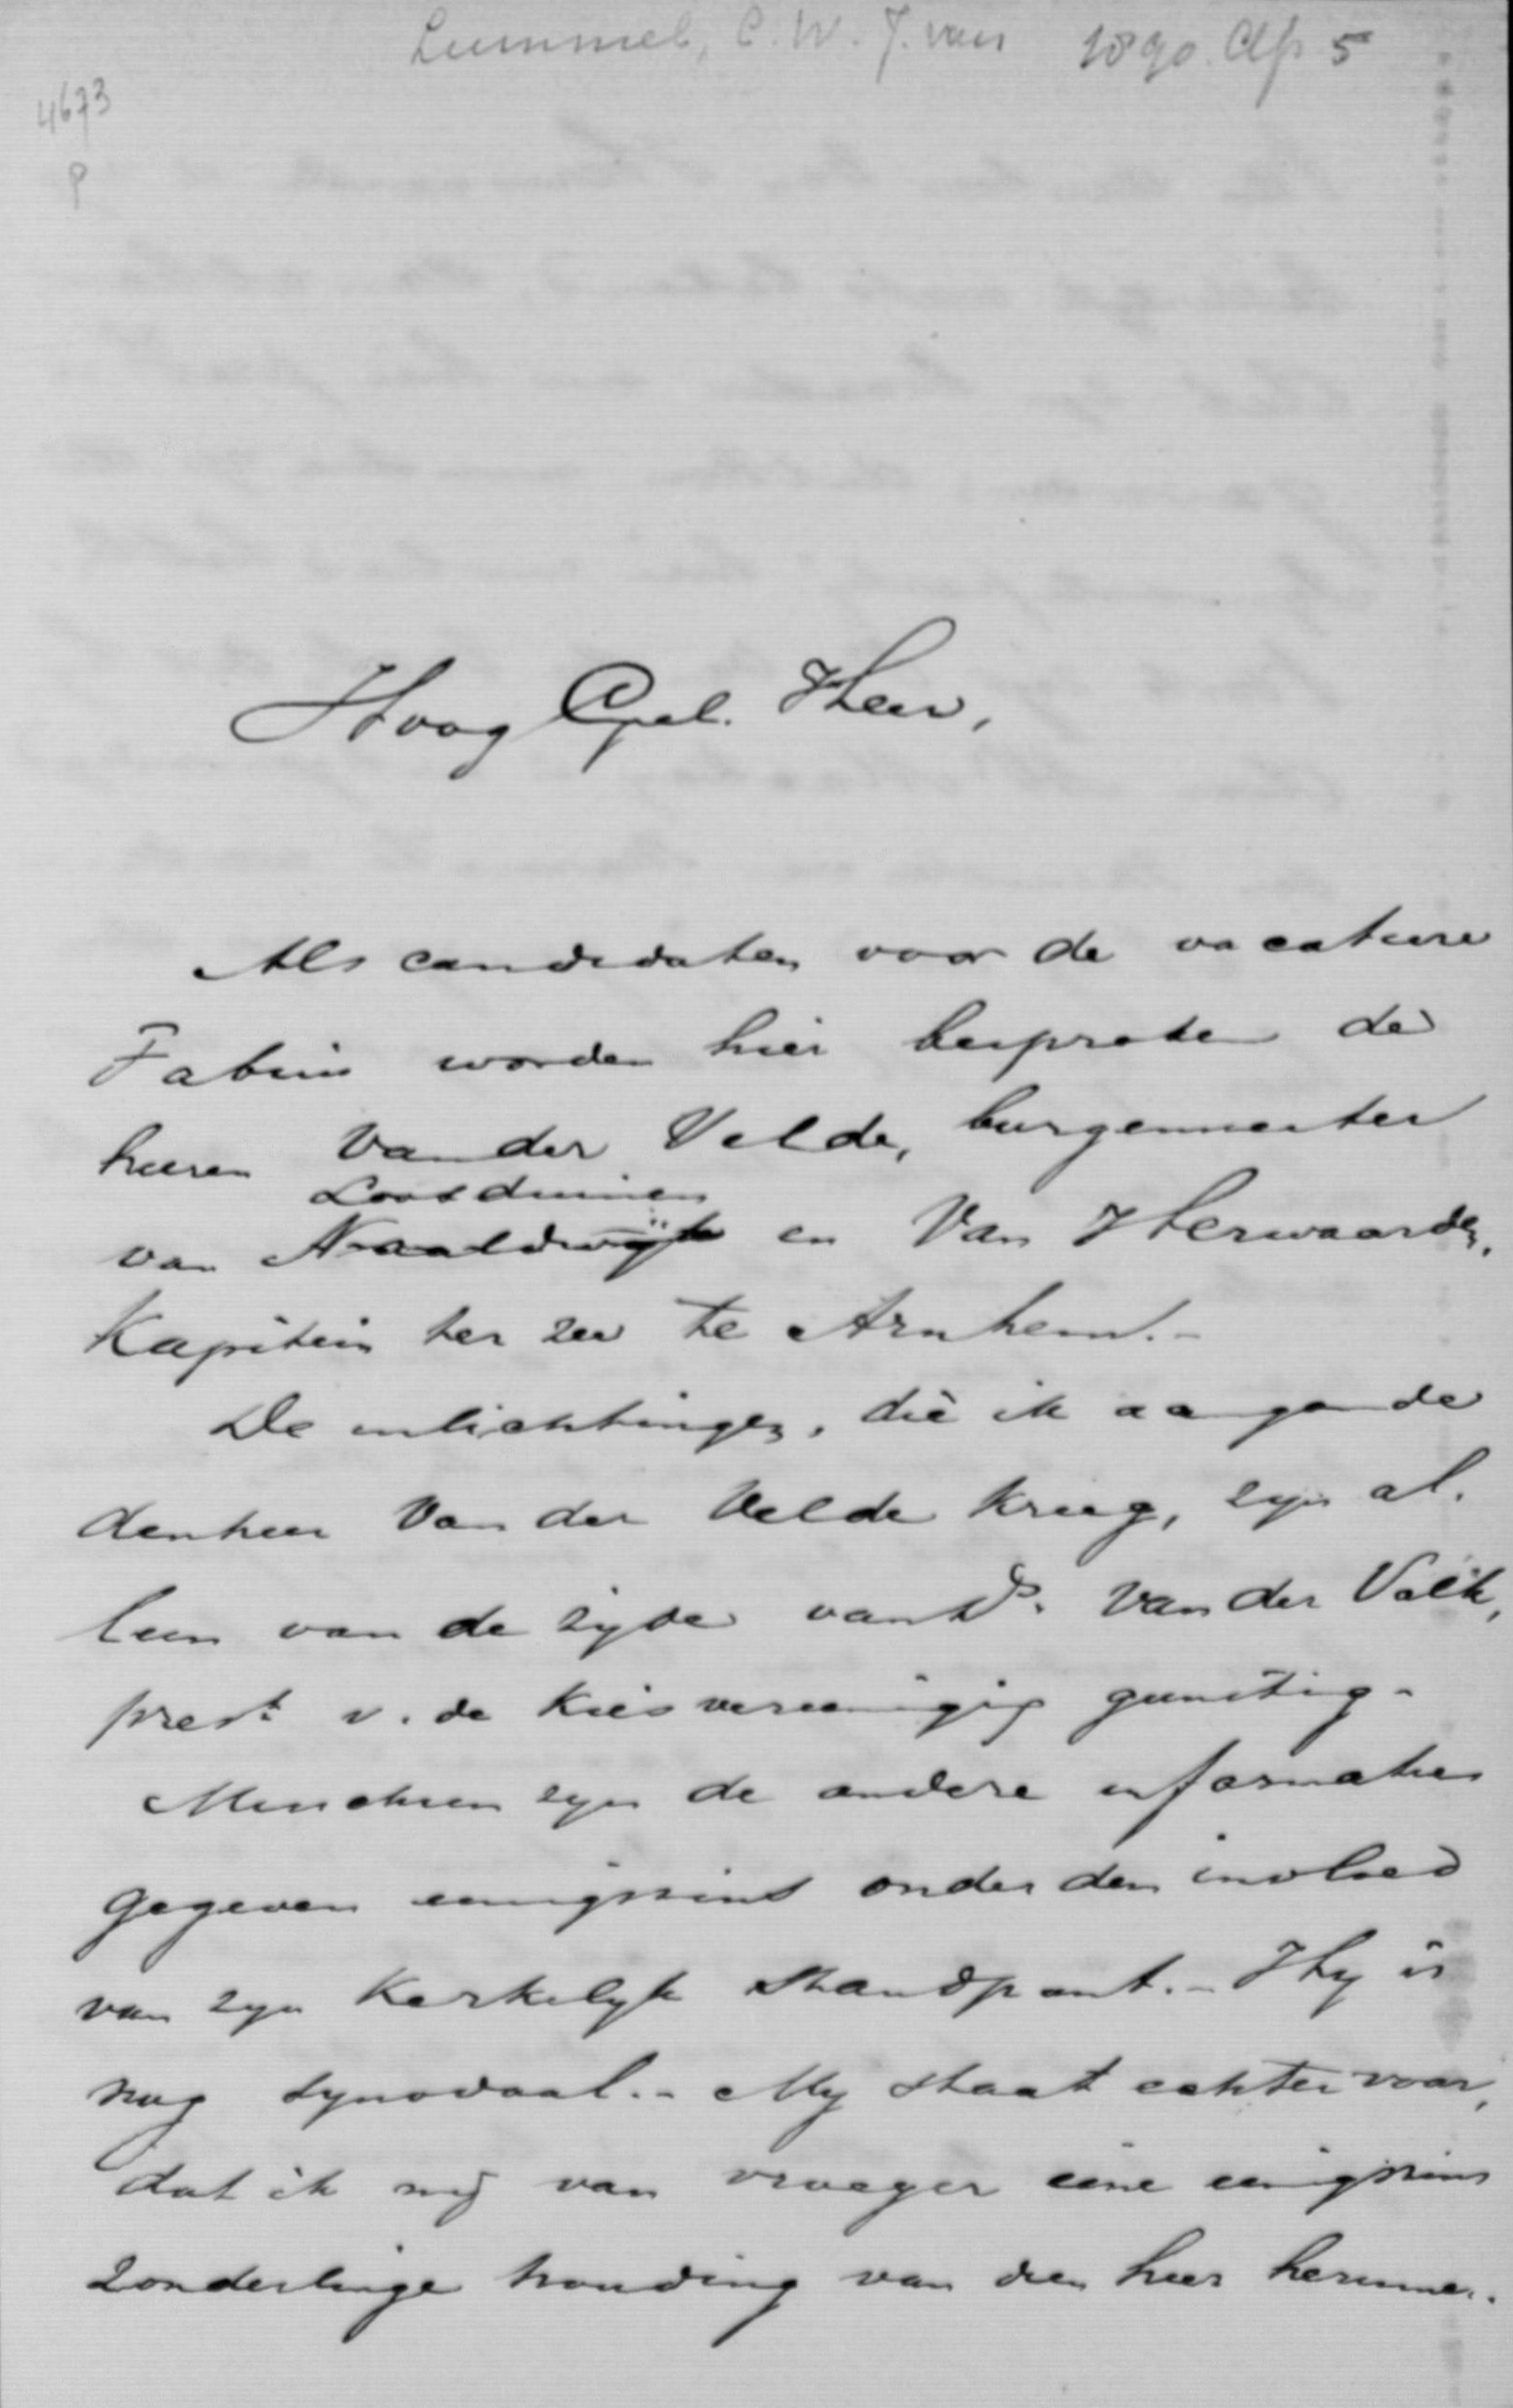 Lummel, C. W. J. van 1890. Ap 5
4673
P
Hoog Gel. Heer,
Als candidaten voor de vacature
Fabius worden hier besproken de
heeren Van der Velde, burgemeester
Loosduinen
van Naaldwijk en Van Herwaarden,
Kapitein ter zee te Arnhem.-
De inlichtingen, die ik aangaande
den heer Van der Velde kreeg, zyn al.
leen van de zyde van Ds. Van der Valk,
prest v. de Kiesvereeniging gunstig.-
Misschien zyn de andere informaties
gegeven eenigszins onder den invloed
van zyn Kerkelyk standpunt.- Hy is
nog synodaal.- My staat echter voor,
dat ik mij van vroeger eene eenigszins
zonderlinge houding van dien heer herinner.